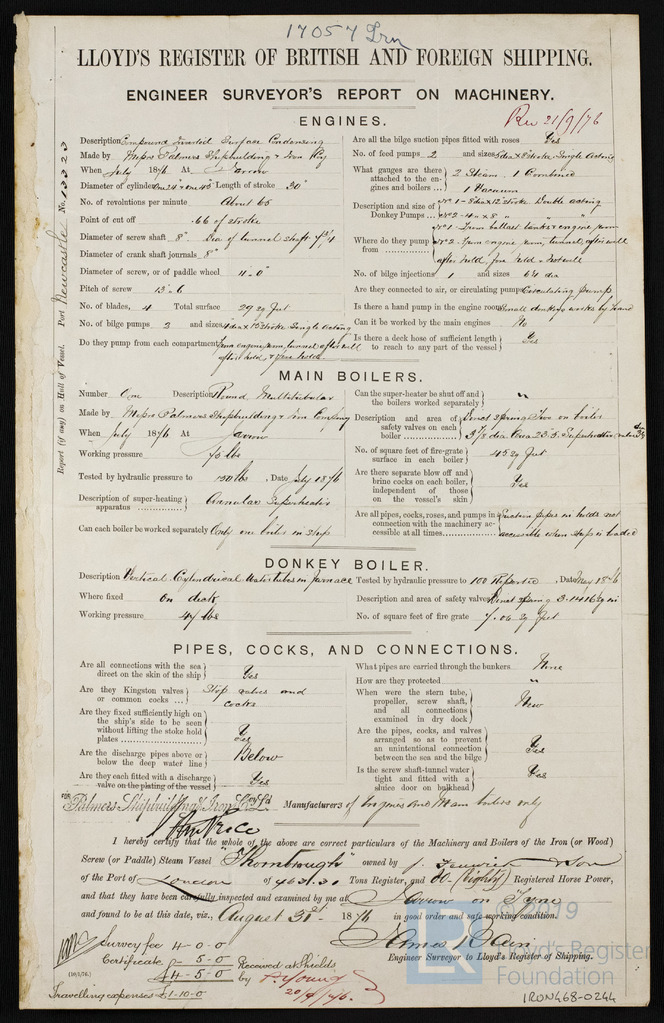 17057 Irn
LLOYD'S REGISTER OF BRITISH AND FOREIGN SHIPPING.
ENGINEER SURVEYOR'S REPORT ON MACHINERY.
Rec 21/9/76
Report (if any) on Hull of Vessel. Port Newcastle No. 13323
ENGINES.
Description Compound Inverted Surface Condensing
Made by Messrs Palmers Shipbuilding & Iron Coy
When July 1876 At Jarrow
Diameter of cylinders Length of stroke 30"
No. of revolutions per minute About 65
Point of cut off .66 of stroke
Diameter of screw shaft 8" Dia of tunnel shaft
Diameter of crank shaft journals 8"
Diameter of screw, or paddle wheel 11-0"
Pitch of screw 13-6
No. of blades, 4 Total surface 29 sq feet
No. of bilge pumps 2 and sizes 4 dia x 15 stroke Single Acting
Do they pump from each compartment From engine room, tunnel, after well
after hold, & fore hold
Are all the bilge suction pipes fitted with roses Yes
No. of feed pumps 2 and sizes stroke Single Acting
What gauges are there attached to the engines and boilers ... 2 Steam 1 Combined
1 Vacuum
Description and size of Donkey Pumps ... No 1- 8 dia x 12 stroke Double acting
No 2- 4 dia x 8 " " "
Where do they pump from No 1- From ballast tanks & engine room
No 2- From engine room, tunnel, after well
after hold, fore hold & hotwell
No. of bilge injections 1 and sizes 6¼ dia
Are they connected to air, or circulating pump Circulating pump
Is there a hand pump in the engine room Small donkey works by hand
Can it be worked by the main engines No
Is there a deck hose of sufficient length to reach to any part of the vessel Yes
MAIN BOILERS.
Number One Description Round Multitubular
Made by Messrs Palmers Shipbuilding & Iron Company
When July 1876 At Jarrow
Working pressure 75 lbs
Tested by hydraulic pressure to 150 lbs, Date July 1876
Description of super-heating apparatus Annular Superheater
Can each boiler be worked separately Only one boiler in ship
Can the super-heater be shut off and the boilers worked separately "
Description and area of safety valves on each boiler Direct spring Two on boiler
3⅞ dia Area 23.5 Superheater
No. of square feet of fire-grate surface in each boiler 45 sq feet
Are there separate blow off and brine cocks on each boiler, independent of those on the vessel's skin Yes
Are all pipes, cocks, roses, and pumps in connection with the machinery accessible at all times Suction pipes in holds not
accessible when ship is loaded
DONKEY BOILER.
Description Vertical Cylindrical Water tubes in furnace
Tested by hydraulic pressure to 100 Reported, Date May 1876
Where fixed On deck
Description and area of safety valves Direct spring 3.1416 sq in
Working pressure 47 lbs
No. of square feet of fire grate 7.06 sq feet
PIPES, COCKS, AND CONNECTIONS.
Are all connections with the sea direct on the skin of the ship Yes
Are they Kingston valves or common cocks ... Stop valves and
cocks
Are they fixed sufficiently high on the ship's side to be seen without lifting the stoke hold plates Yes
Are the discharge pipes above or below the deep water line Below
Are they each fitted with a discharge valve on the plating of the vessel Yes
What pipes are carried through the bunkers None
How are they protected "
When were the stern tube, propeller, screw shaft, and all connections examined in dry dock New
Are the pipes, cocks, and valves arranged so as to prevent an unintentional connection between the sea and the bilge Yes
Is the screw shaft-tunnel water tight and fitted with a sluice door on bulkhead Yes
FOR Palmers Shipbuilding & Iron Coy Ld Manufacturers of Engines and Main boilers only
John Price
I hereby certify that the whole of the above are correct particulars of the Machinery and Boilers of the Iron (or Wood)
Screw (or Paddle) Steam Vessel "Thornbrough" owned by J. Fenwick & Son
of the Port of London of 963.31 Tons Register, and 80-(Eighty) Registered Horse Power,
and that they have been carefully inspected and examined by me at Jarrow on Tyne
and found to be at this date, viz., August 31st 1876 in good order and safe working condition.
James Bain
Engineer Surveyor to Lloyd's Register of Shipping.
Survey fee 4-0-0
Certificate - 5-0
£4-5-0 Received at Shields
by P. Young
20/9/76.
Travelling expenses £1-10-0
© 2019
Lloyd's Register
Foundation
LR
IRON468-0244